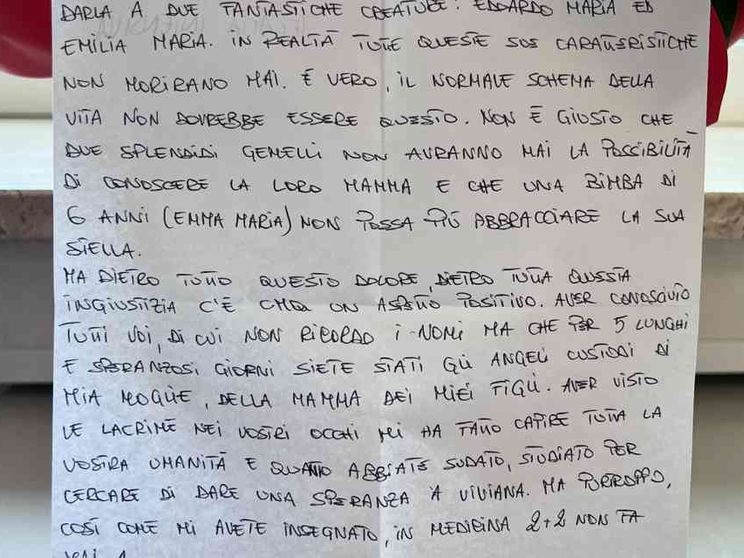 DARLA A DUE FANTASTICHE CREATURE: EDOARDO MARIA ED
EMILIA MARIA. IN REALTÀ TUTTE QUESTE SUE CARATTERISTICHE
NON MORIRANO MAI. È VERO, IL NORMALE SCHEMA DELLA
VITA NON DOVREBBE ESSERE QUESTO. NON È GIUSTO CHE
DUE SPLENDIDI GEMELLI NON AVRANNO MAI LA POSSIBILITÀ
DI CONOSCERE LA LORO MAMMA E CHE UNA BIMBA DI
6 ANNI (EMMA MARIA) NON POSSA PIÙ ABBRACCIARE LA SUA
STELLA.
MA DIETRO TUTTO QUESTO DOLORE, DIETRO TUTTA QUESTA
INGIUSTIZIA C'È CMQ UN ASPETTO POSITIVO. AVER CONOSCIUTO
TUTTI VOI, DI CUI NON RICORDO I NOMI MA CHE PER 5 LUNGHI
E SPERANZOSI GIORNI SIETE STATI GLI ANGELI CUSTODI DI
MIA MOGLIE, DELLA MAMMA DEI MIEI FIGLI. AVER VISTO
LE LACRIME NEI VOSTRI OCCHI MI HA FATTO CAPIRE TUTTA LA
VOSTRA UMANITÀ E QUANTO ABBIATE SUDATO, STUDIATO PER
CERCARE DI DARE UNA SPERANZA A VIVIANA. MA PURTROPPO,
COSÌ COME MI AVETE INSEGNATO, IN MEDICINA 2+2 NON FA